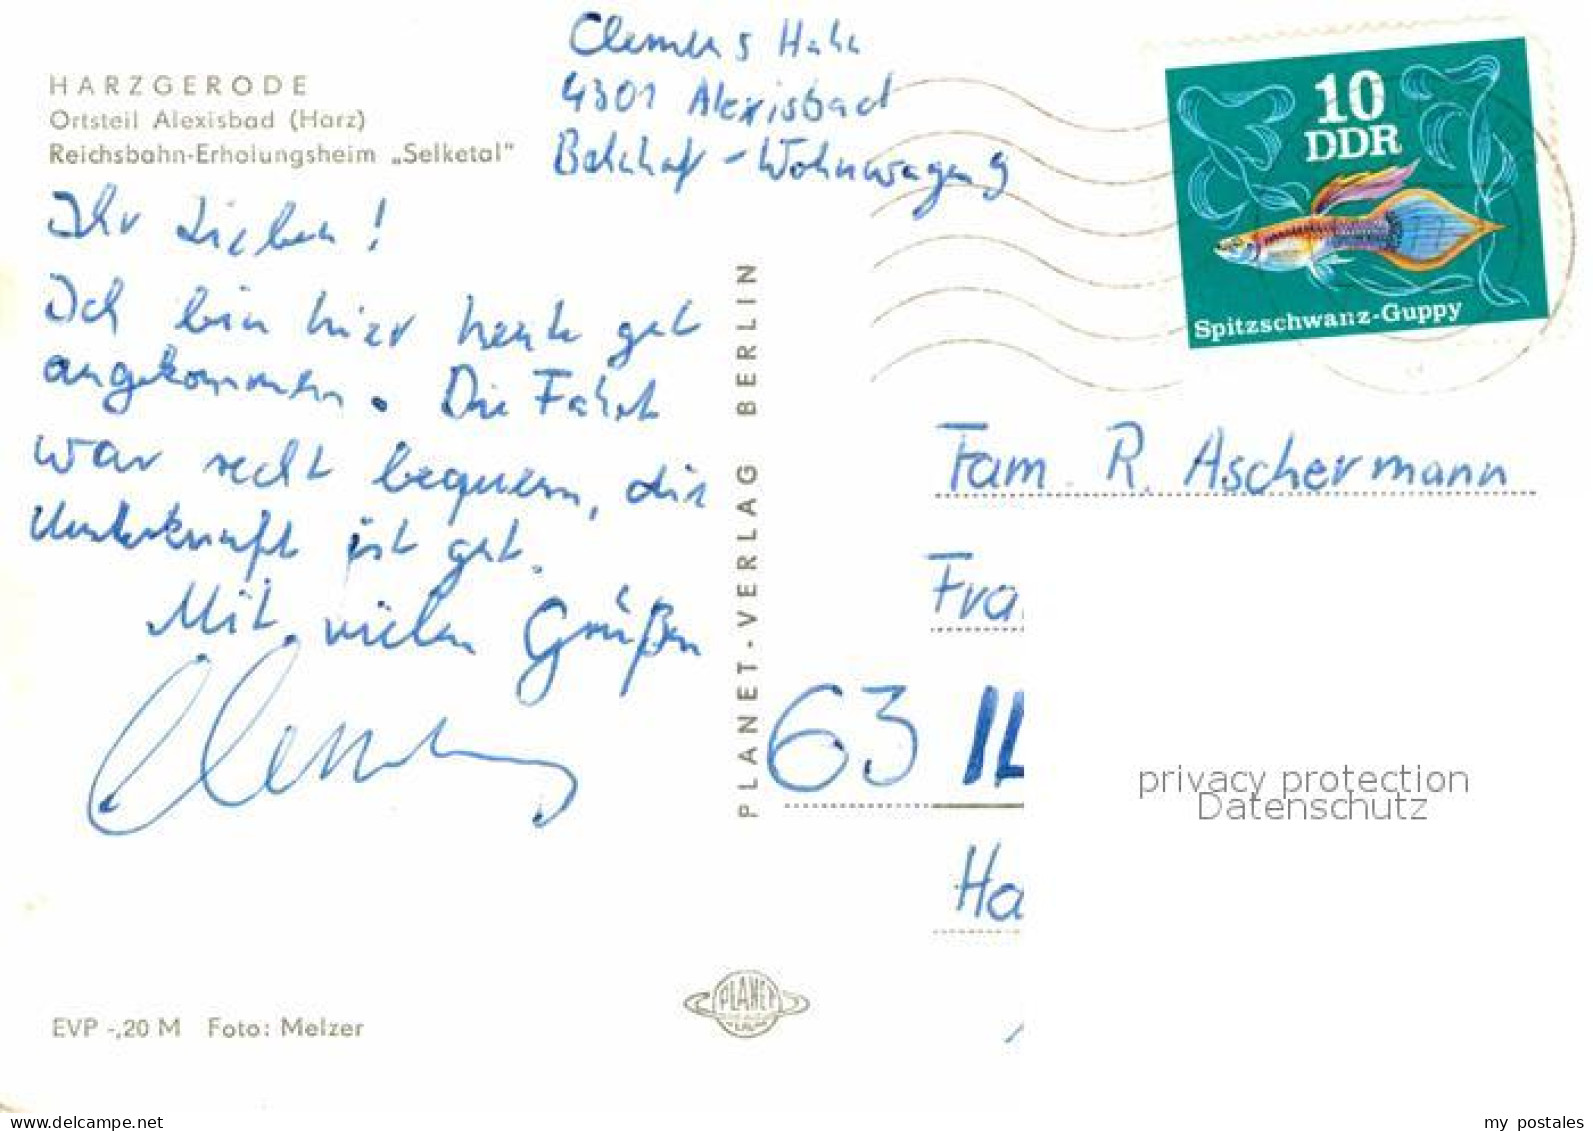 HARZGERODE
Ortsteil Alexisbad (Harz)
Reichsbahn-Erholungsheim „Selketal"
Clemens Hahn
4301 Alexisbad
Bahnhof - Wohnwagen 9
10
DDR
Spitzschwanz-Guppy
Ihr Lieben!
Ich bin hier heute gut
angekommen. Die Fahrt
war recht bequem, die
Unterkunft ist gut.
Mit vielen Grüßen
Clemens
PLANET-VERLAG BERLIN
Fam. R. Aschermann
Fra
63 IL
Ha
privacy protection
Datenschutz
PLANET
VERLAG
EVP -,20 M Foto: Melzer
delcampe.net
my_postales